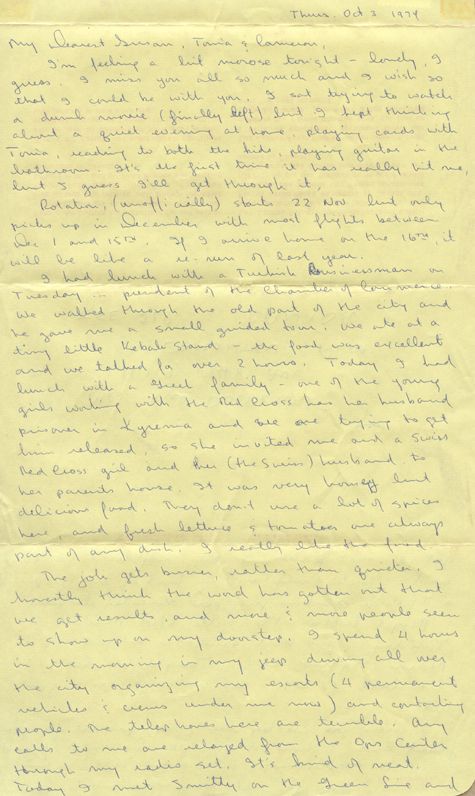 Thurs. Oct 3 1974
My Dearest Susan, Tonia & Cameron,
I'm feeling a bit morose tonight - lonely, I
guess. I miss you all so much and I wish so
that I could be with you. I sat trying to watch
a dumb movie (finally left) but I kept thinking
about a quiet evening at home, playing cards with
Tonia, reading to both the kids, playing guitar in the
bathroom. It's the first time it has really hit me,
but I guess I'll get through it.
Rotation, (unofficially) starts 22 Nov but only
picks up in December with most flights between
Dec 1 and 15th. If I arrive home on the 16th, it
will be like a re-run of last year.
I had lunch with a Turkish Businessman on
Tuesday ... president of the Chamber of Commerce.
We walked through the old part of the city and
he gave me a small guided tour. We ate at a
tiny little Kebab Stand - the food was excellent
and we talked for over 2 hours. Today I had
lunch with a Greek family - one of the young
girls working with the Red Cross has her husband
prisoner in Kyrenia and we are trying to get
him released, so she invited me and a Swiss
Red Cross girl and her (the Swiss) husband to
her parents house. It was very homey but
delicious food. They don't use a lot of spices
here, and fresh lettuce & tomatoes are always
part of any dish. I really like the food.
The job gets busier, rather than quieter. I
honestly think the word has gotten out that
we get results, and more & more people seem
to show up on my doorstep. I spend 4 hours
in the morning in my jeep driving all over
the city organizing my escorts (4 permanent
vehicles & crews under me now) and contacting
people. The telephones here are terrible. Any
calls to me are relayed from the Ops Center
through my radio set. It's kind of neat.
Today I met Smitty on the Green Line and